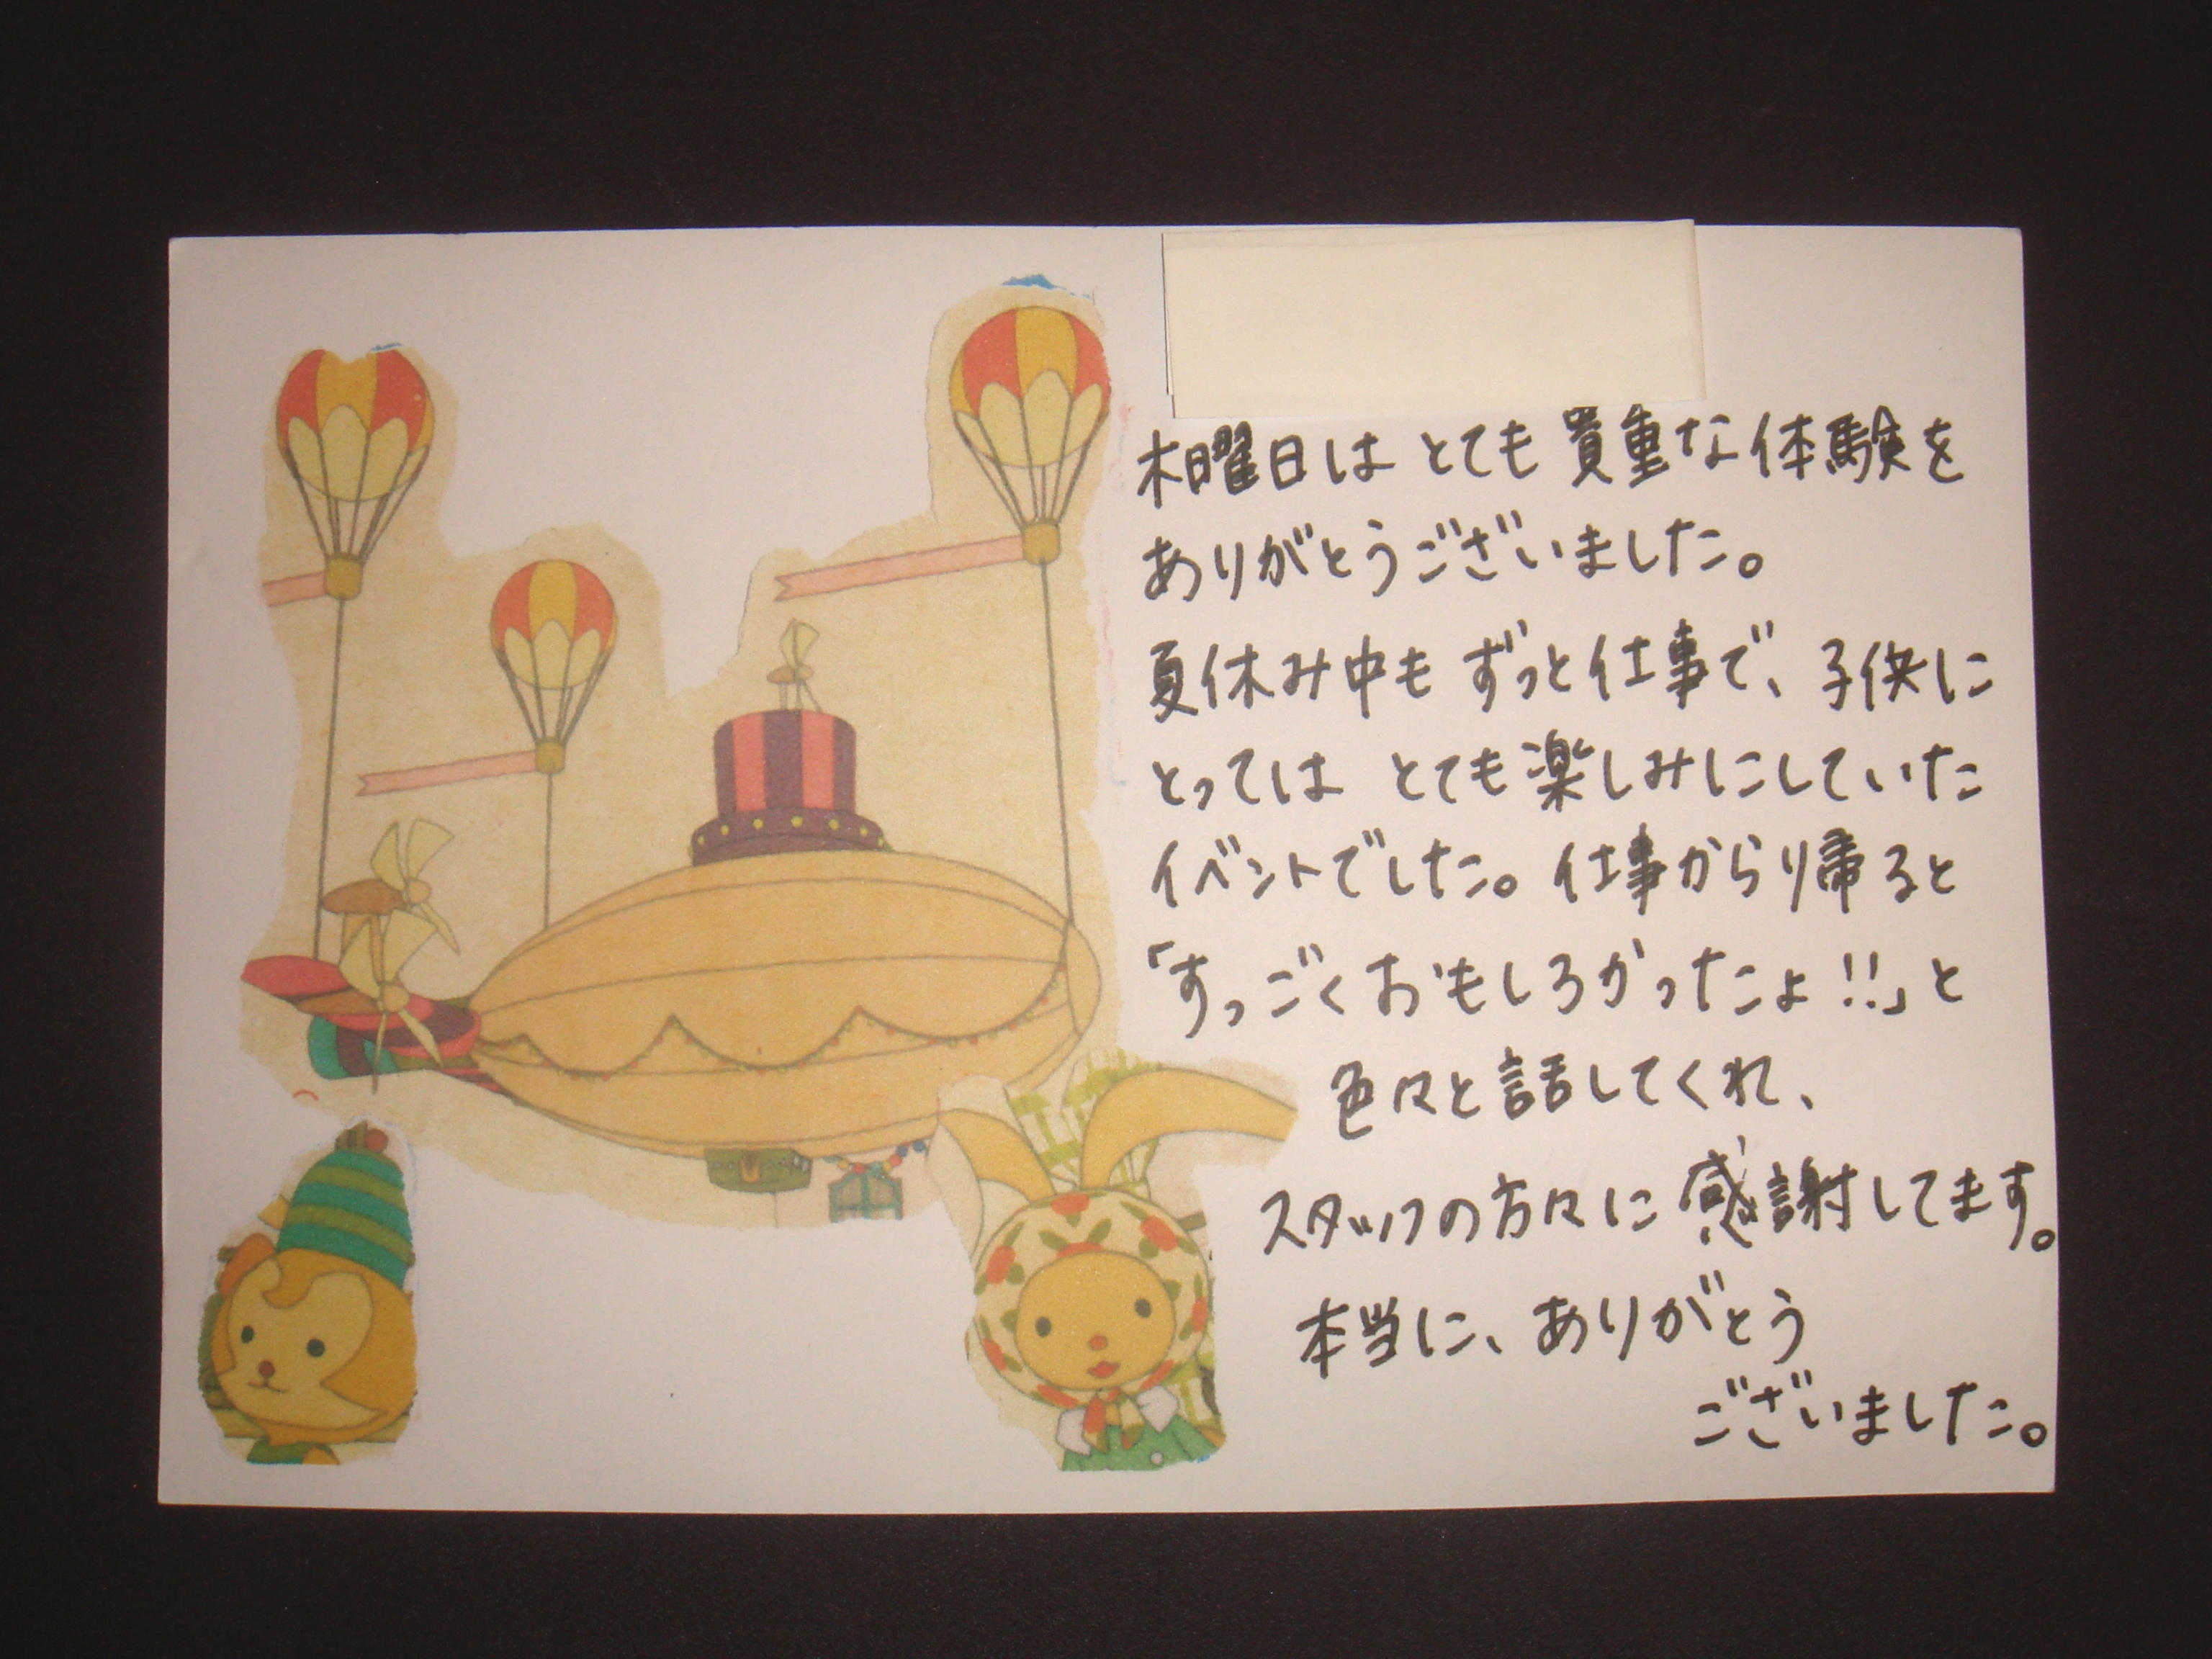 木曜日は とても貴重な体験を
ありがとうございました。
夏休み中も ずっと仕事で、子供に
とっては とても楽しみにしていた
イベントでした。仕事からり帰ると
「すっごくおもしろかったよ!!」と
色々と話してくれ、
スタッフの方々に感謝してます。
本当に、ありがとう
ございました。